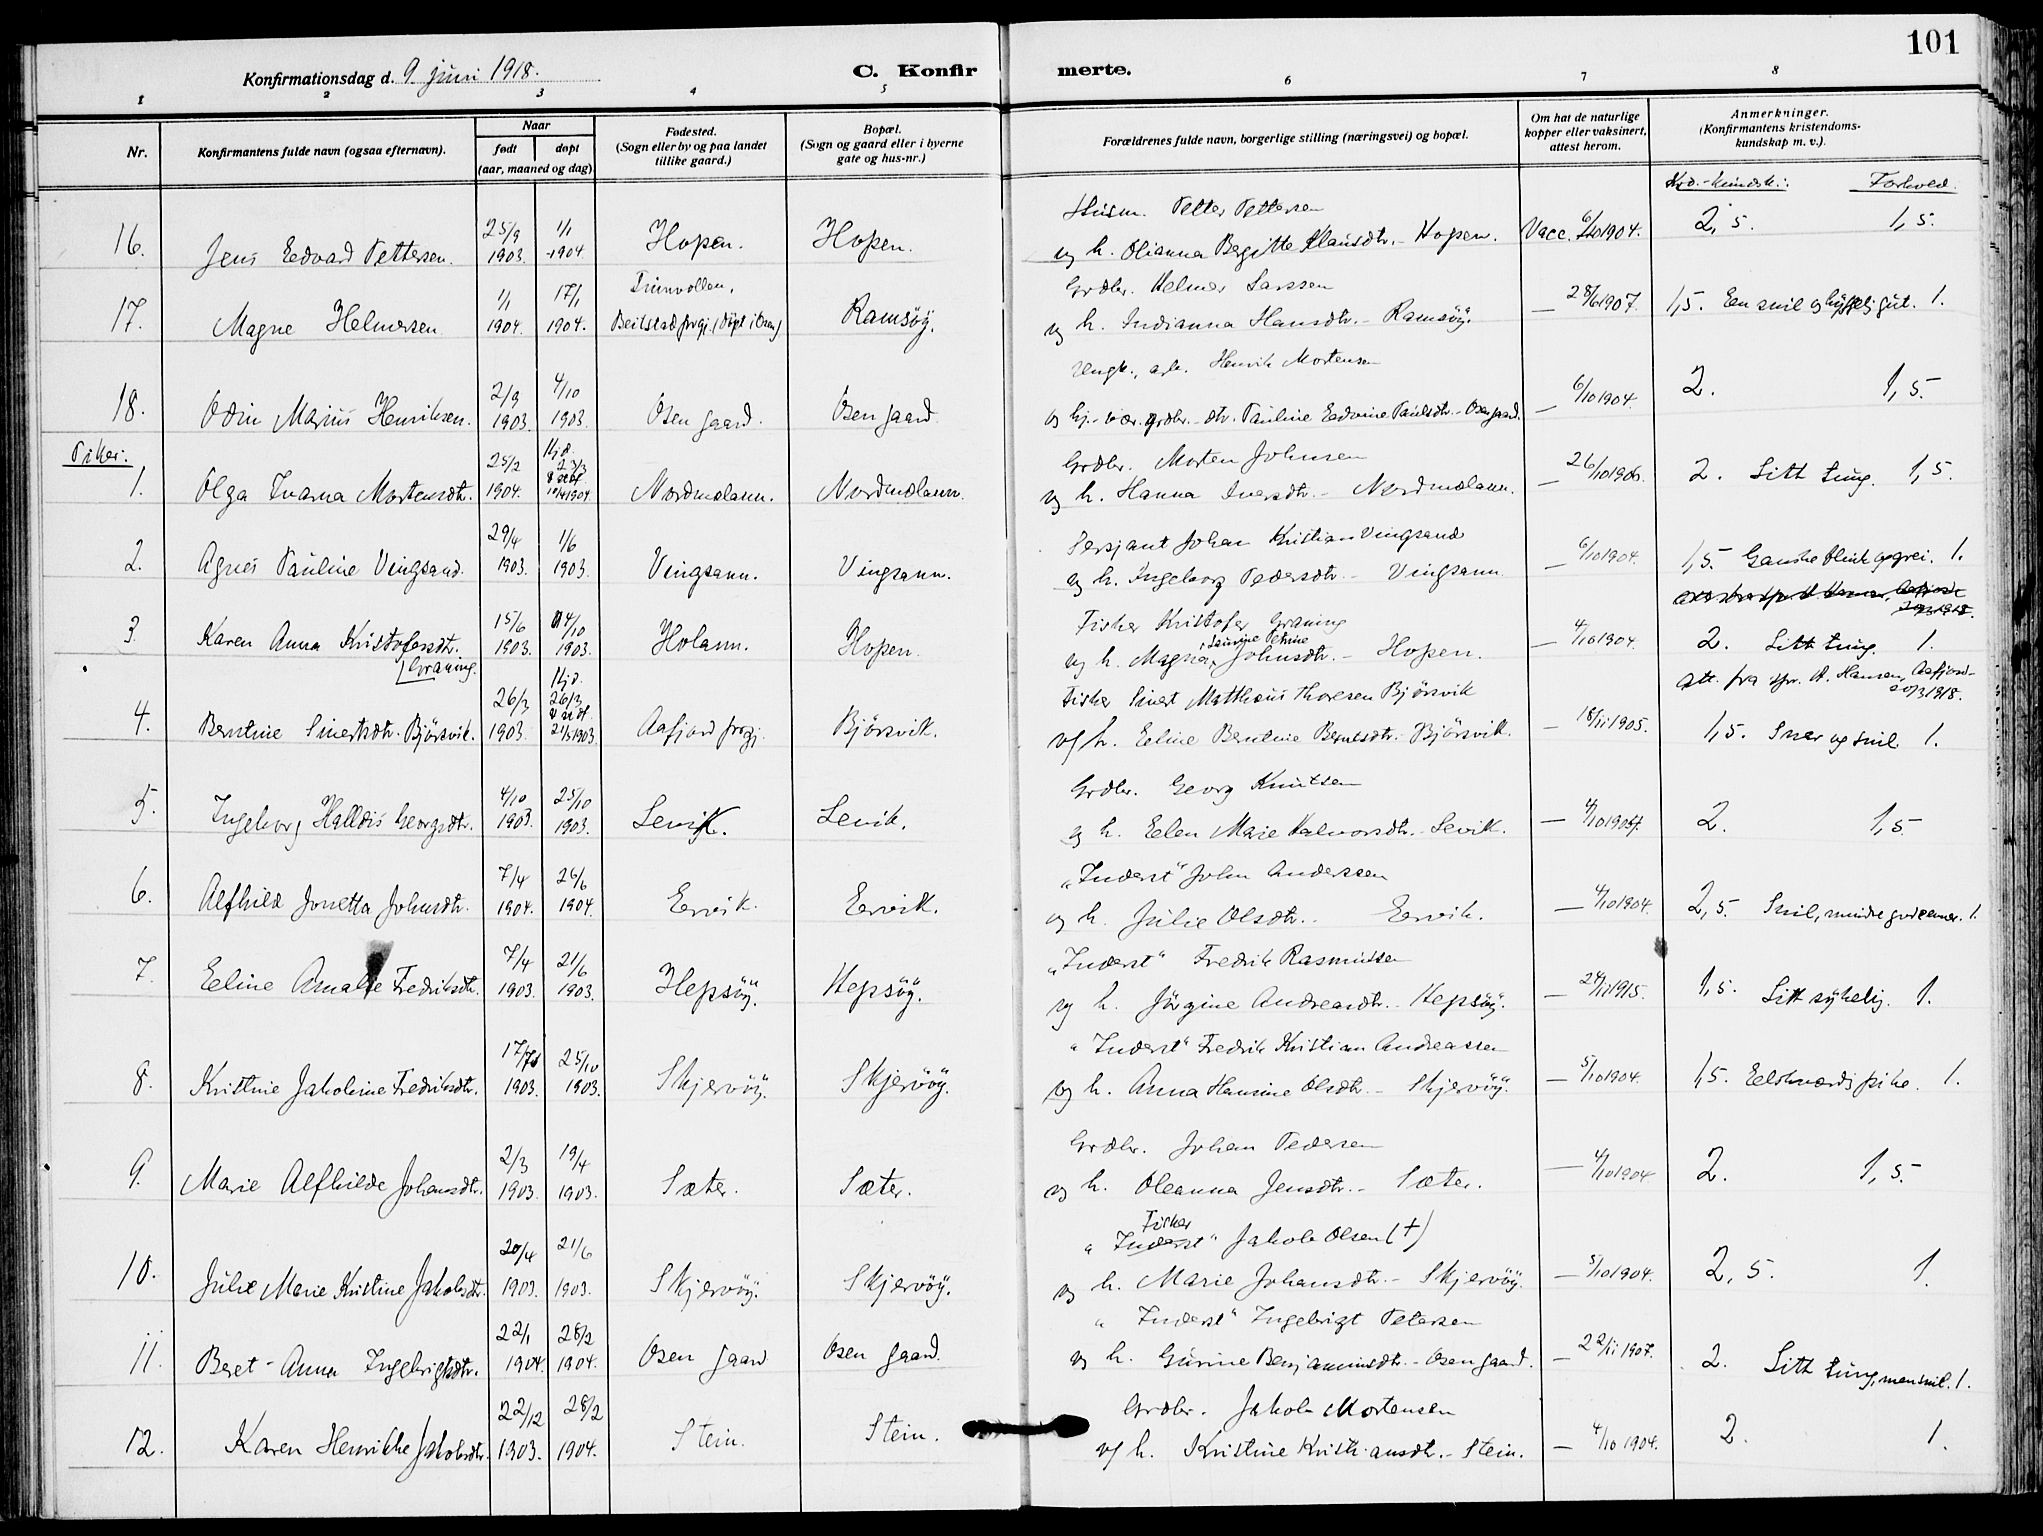 101
Konfirmationsdag d. 9 juni 1918.
C. Konfirmerte.
1 2 3 4 5 6 7 8
Nr.
Konfirmantens fulde navn (ogsaa efternavn).
Naar
født døpt
(aar, maaned og dag)
Fødested.
(Sogn eller by og paa landet
tillike gaard.)
Bopæl.
(Sogn og gaard eller i byerne
gate og hus-nr.)
Forældrenes fulde navn, borgerlige stilling (næringsvei) og bopæl.
Om hat de naturlige
kopper eller vaksinert,
attest herom.
Anmerkninger.
(Konfirmantens kristendoms-
kundskap m. v.).
Krd.-kundsk.: Forhold.
Husm. Petter Pettersen
16. Jens Edvard Pettersen. 25/9 1903. 1/1 1904 Hopen. Hopen. og h. Olianna Bergitte Klausdtr. - Hopen. Vacc. 6/10 1904. 2,5. 1,5.
Grdbr. Helmer Larssen
17. Magne Helmersen 1/1 1904. 17/1 1904. Beitstad prgj. (døpt i Osen) Ramsöy. og h. Indianna Hansdtr. - Ramsöy. — 28/6 1907. 1,5. Een snil og hyggelig gut. 1.
Ungk., arb. Henrik Mortensen
18. Odin Marius Henriksen. 2/9 1903. 4/10 1903. Osen gaard. Osen gaard. og hj.-vær. grdbr.-dtr. Pauline Edvine Paulsdtr. - Osen gaard. — 6/10 1904. 2. 1,5.
Piker:
Grdbr. Morten Johnsen
1. Olga Ivarna Mortensdtr. 25/2 1904. Hjd. 23/3 10/4 1904 Nordmelann. Nordmelann. og h. Hanna Iversdtr. - Nordmelann. — 26/10 1906. 2. Litt tung. 1,5.
Sersjant Johan Kristian Vingsand
2. Agnes Pauline Vingsand. 29/4 1903. 1/6 1903. Vingsann. Vingsann. og h. Ingeborg Pedersdtr. - Vingsann — 6/10 1904. 1,5. Ganske flink og grei. 1.
Fisker Kristofer Graning
3. Karen Anna Kristofersdtr. Graning. 15/6 1903. 4/10 1903. Holann. Hopen. og h. Magna Laurine Petrine Johnsdtr. - Hopen. — 4/10 1904. 2. Litt tung. 1.
Att. fra spr. A. Hansen, Aafjord 20/3 1918.
Fisker Sivert Mattheus Thoresen Björsvik
4. Berntine Sivertsdtr. Björsvik. 26/3 1903. Hjd. 26/3 21/5 1903. Aafjord prgj. Björsvik. og h. Eline Berntine Berntsdtr. Björsvik. — 18/11 1905. 1,5. Snar og snil 1.
Grdbr. Georg Knutsen
5. Ingeborg Halldis Georgsdtr. 4/10 1903. 25/10 1903. Sevik. Sevik. og h. Elen Marie Halvorsdtr. - Sevik. — 4/10 1904. 2. 1,5.
"Inderst" John Anderssen
6. Alfhild Jonetta Johnsdtr. 7/4 1904. 26/6 1904. Ervik. Ervik. og h. Julie Olsdtr. - Ervik. — 4/10 1904. 2,5. Snil, mindre gode evner. 1.
"Inderst" Fredrik Rasmussen
7. Eline Amalie Fredriksdtr. 7/4 1903. 21/6 1903. Hepsöy. Hepsöy. og h. Jörgine Andreasdtr. - Hepsöy. — 24/11 1915. 1,5. Litt sykelig. 1.
"Inderst" Fredrik Kristian Andreassen
8. Kristine Jakobine Fredriksdtr. 17/7 1903. 25/10 1903. Skjervöy. Skjervöy. og h. Anna Hansine Olsdtr. - Skjervöy. — 5/10 1904. 1,5. Elskværdig pike. 1.
Grdbr. Johan Pedersen
9. Marie Alfhilde Johansdtr. 2/3 1903. 19/4 1903. Sæter. Sæter. og h. Oleanna Jensdtr. - Sæter. — 4/10 1904 2. 1,5.
Fisker
"Inderst" Jakob Olsen (+)
10. Julie Marie Kristine Jakobsdtr. 20/4 1903. 21/6 1903. Skjervöy. Skjervöy. og h. Marie Johansdtr. - Skjervöy. — 5/10 1904. 2,5. 1.
"Inderst" Ingebrigt Petersen
11. Beret-Anna Ingebrigtsdtr. 22/1 1904. 28/2 1904. Osen gaard Osen gaard. og h. Gurine Benjaminsdtr. - Osen gaard. — 22/11 1907. 2. Litt tung, men snil. 1.
Grdbr. Jakob Mortensen
12. Karen Henrikke Jakobsdtr. 22/12 1903. 28/2 1904. Stein. Stein. og h. Kristine Kristiansdtr. - Stein. — 4/10 1904. 2. 1.